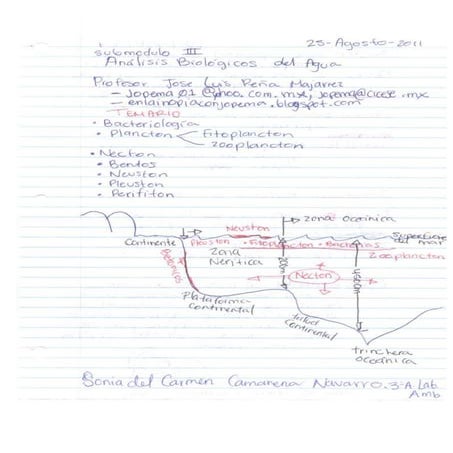 25-Agosto-2011
submodulo III
Análisis Biológicos del Agua
Profesor Jose Luis Peña Majarrez
- Jopema 01 @yahoo.com.mx, jopema@cicese.mx
- enlainopiaconjopema.blogspot.com
TEMARIO
• Bacteriología
• Plancton
Fitoplancton
Zooplancton
• Necton
• Bentos
• Neuston
• Pleuston
• Perifiton
Zona Oceánica
Neuston
Superficie del mar
Continente
Pleuston • Fitoplancton • Bacterias
Zooplancton
Zona Nerítica
Bentonicos
200m
Necton
Plataforma continental
talud continental
trinchera oceánica
Sonia del Carmen Camarena Navarro. 3-A. Lab.
Amb